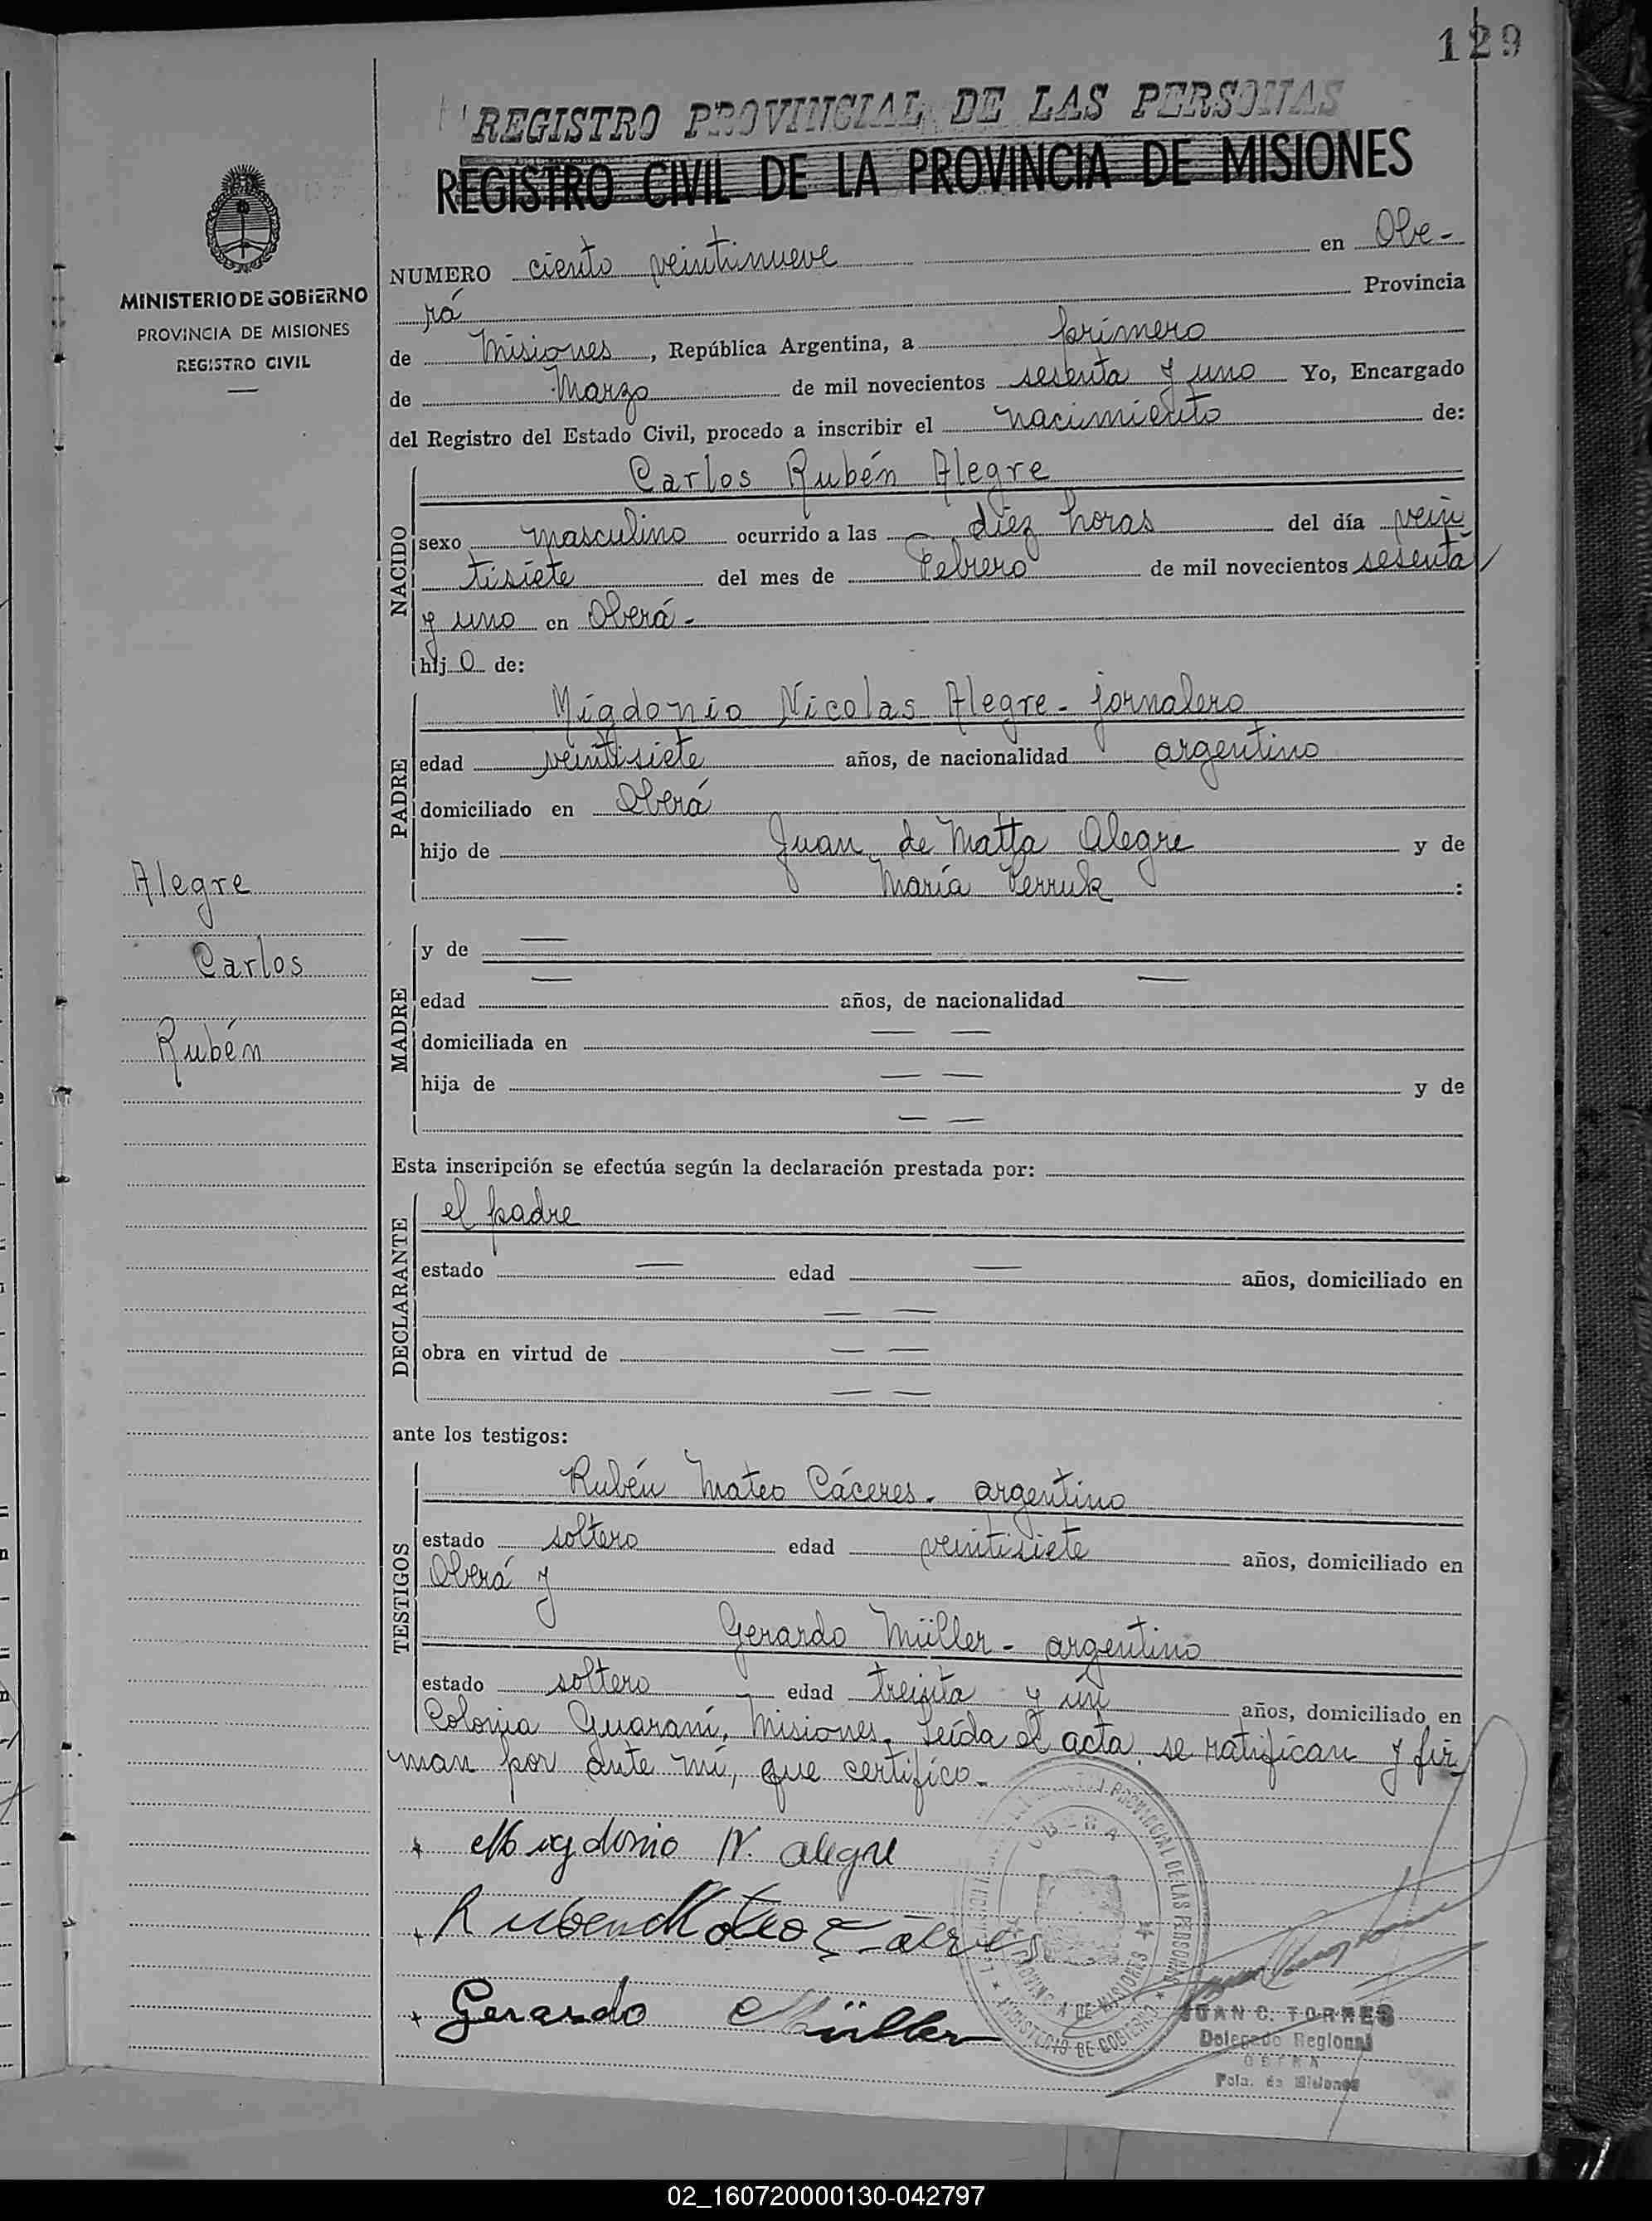 129
REGISTRO PROVINCIAL DE LAS PERSONAS
REGISTRO CIVIL DE LA PROVINCIA DE MISIONES
MINISTERIO DE GOBIERNO
PROVINCIA DE MISIONES
REGISTRO CIVIL
NUMERO ciento veintinueve en Obe-
rá Provincia
de Misiones, República Argentina, a primero
de Marzo de mil novecientos sesenta y uno Yo, Encargado
del Registro del Estado Civil, procedo a inscribir el nacimiento de:
NACIDO
Carlos Rubén Alegre
sexo masculino ocurrido a las diez horas del día vein
tisiete del mes de Febrero de mil novecientos sesenta
y uno en Oberá.-
hijo de:
PADRE
Migdonio Nicolas Alegre - jornalero
edad veintisiete años, de nacionalidad argentino
domiciliado en Oberá
hijo de Juan de Matta Alegre y de
María :
Alegre
Carlos
Rubén
MADRE
y de —
edad — años, de nacionalidad —
domiciliada en — —
hija de — — y de
— —
Esta inscripción se efectúa según la declaración prestada por:
DECLARANTE
el padre
estado — edad — años, domiciliado en
— —
obra en virtud de — —
— —
ante los testigos:
TESTIGOS
Rubén Mateo Cáceres. argentino
estado soltero edad veintisiete años, domiciliado en
Oberá y
Gerardo Müller - argentino
estado soltero edad treinta y un años, domiciliado en
Colonia Guaraní, Misiones. Leída el acta, se ratifican y fir
man por ante mí, que certifico.-
Migdonio N. Alegre
Ruben Mateo Caceres
Gerardo Müller
JUAN C. TORRES
Delegado Regional
OBERA
Pcia. de Misiones
02_160720000130-042797